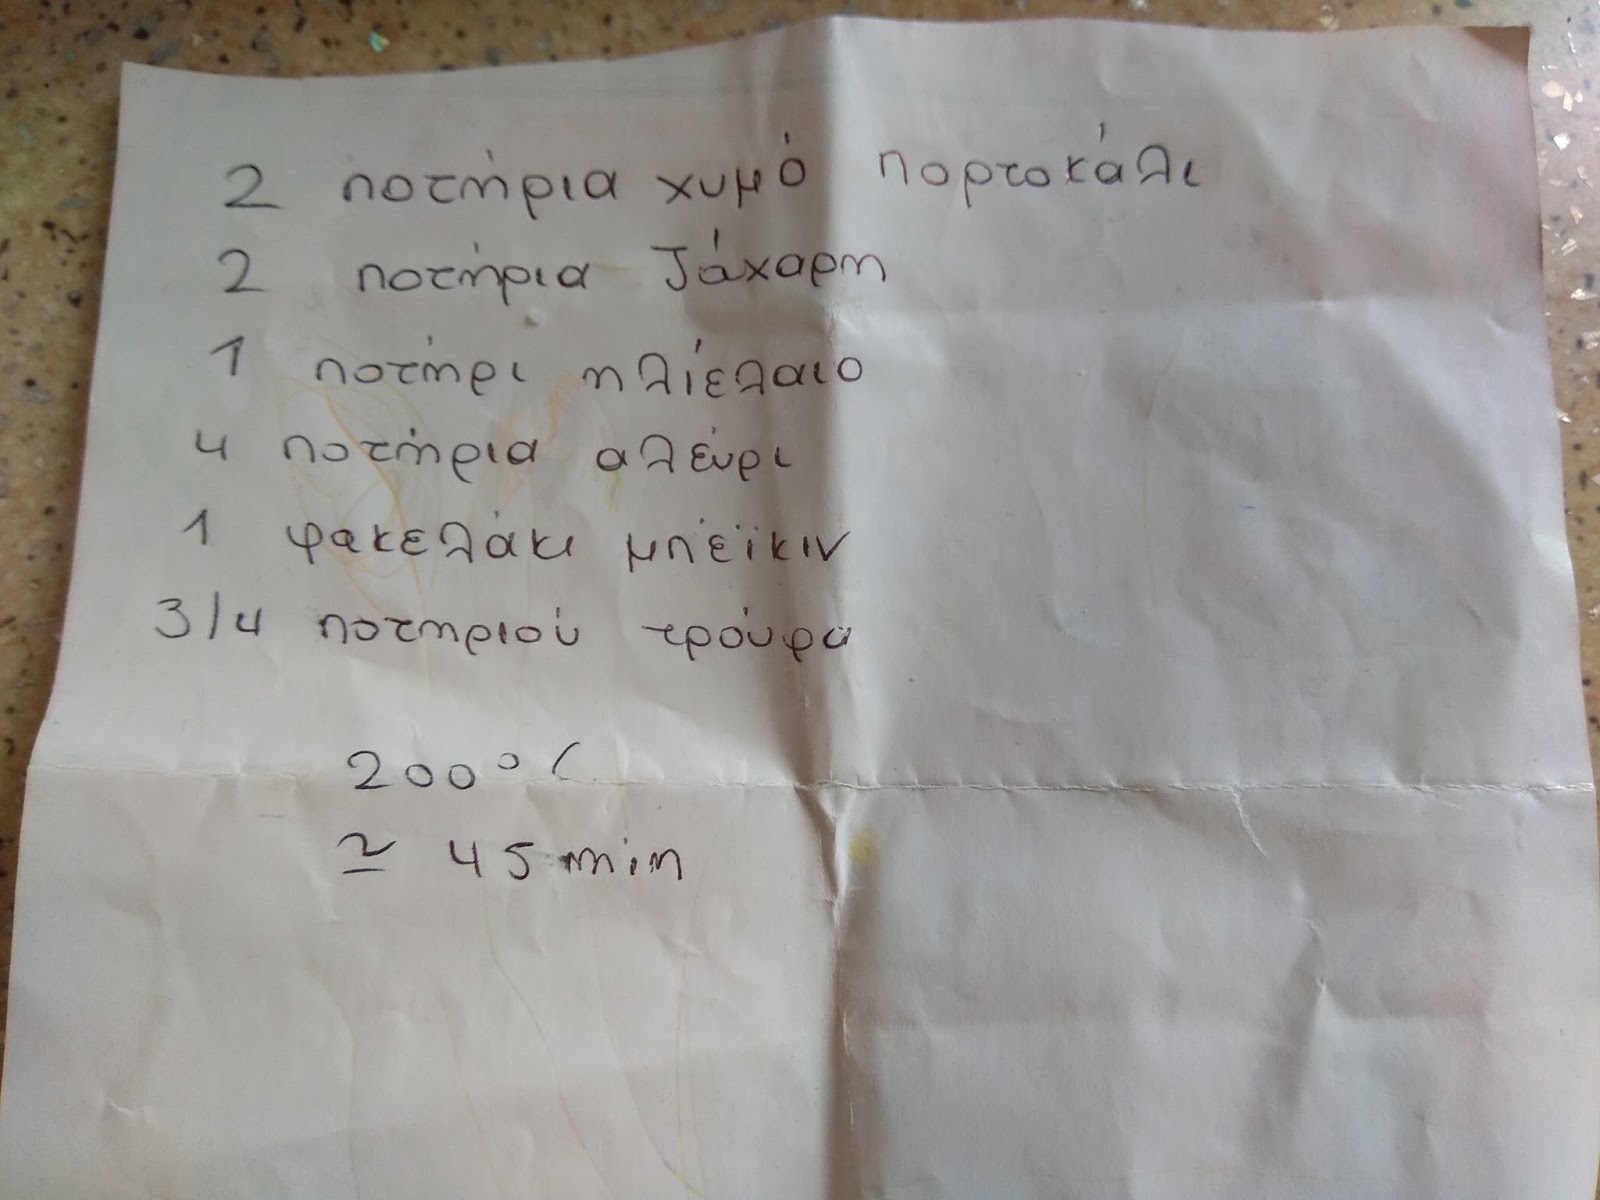 2 ποτήρια χυμό πορτοκάλι
2 ποτήρια ζάχαρη
1 ποτήρι ηλιέλαιο
4 ποτήρια αλεύρι
1 φακελάκι μπέϊκιν
3/4 ποτηριού τρούφα
200°C
≃ 45 min